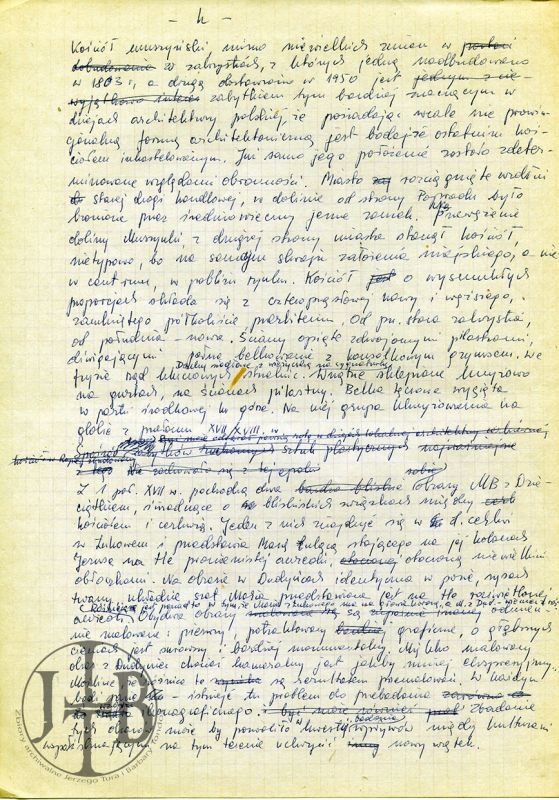 - 4 -
Kościół muszyński, mimo niewielkich zmian w
w zakrystiach, z których jedną nadbudowano
w 1803 r, a drugą dostawiono w 1950 jest
zabytkiem tym bardziej znaczącym w
dziejach architektury polskiej, że posiadając wcale nie prowin-
cjonalną formę architektoniczną jest bodajże ostatnim koś-
ciołem inkastelowanym. Już samo jego położenie zostało zdeter-
minowane względami obronności. Miasto rozciągnięte wzdłuż
starej drogi handlowej, w dolinie od strony Popradu było
bronione przez średniowieczny jeszcze zamek. Na przewężeniu
doliny Muszynki, z drugiej strony miasta stanął kościół,
nietypowo, bo na samym skraju założenia miejskiego, a nie
w centrum, w pobliżu rynku. Kościół o wysmukłych
proporcjach składa się z czteroprzęsłowej nawy i węższego,
zamkniętego półkoliście prezbiterium. Od pn. stara zakrystia,
od południa - nowa. Ściany opięte zdwojonymi pilastrami,
dźwigającymi pełne belkowanie z konsolkowym gzymsem. We
fryzie rząd kluczowych strzelnic.
Wnętrze sklepione krzyżowo
na gurtach, na ścianach pilastry. Belka tęczowa wygięta
w partii środkowej ku górze. Na niej grupa Ukrzyżowania na
globie z przełomu XVII/XVIII w.
sztuk plastycznych
nie zachowało się z tej epoki
Z 1 poł. XVII w. pochodzą dwa obrazy MB z Dzie-
ciątkiem, świadczące o bliskich związkach między
kościołem i cerkwią. Jeden z nich znajduje się w d. cerkwi
w Żukowem i przedstawia Marię tulącą stojącego na jej kolanach
Jezusa na tle promienistej aureoli, otoczonej niewielkimi
obłoczkami. Na obrazie w Dudyńcach identyczna w pozie, rysach
twarzy, układzie szat Maria przedstawiona jest na tle rozświetlonej
aureoli. Obydwa obrazy są
nie malowane i pierwszy, potraktowany graficznie, o głębszych
cieniach jest surowszy i bardziej monumentalny. Miękko malowany
obraz z Dudyniec chociaż kameralny jest jakby mniej ekspresyjny.
Możliwe że różnice te są rezultatem przemalowań. W każdym
bądź razie - istnieje tu problem do przebadania
ikonograficznego. Zbadanie
tych obrazów może by pozwoliło w kwestii wpływów między kulturami
współistniejącymi na tym terenie uchwycić nowy wątek.
JTB
Zbiory archiwalne Jerzego Tura i Barbary Tondos